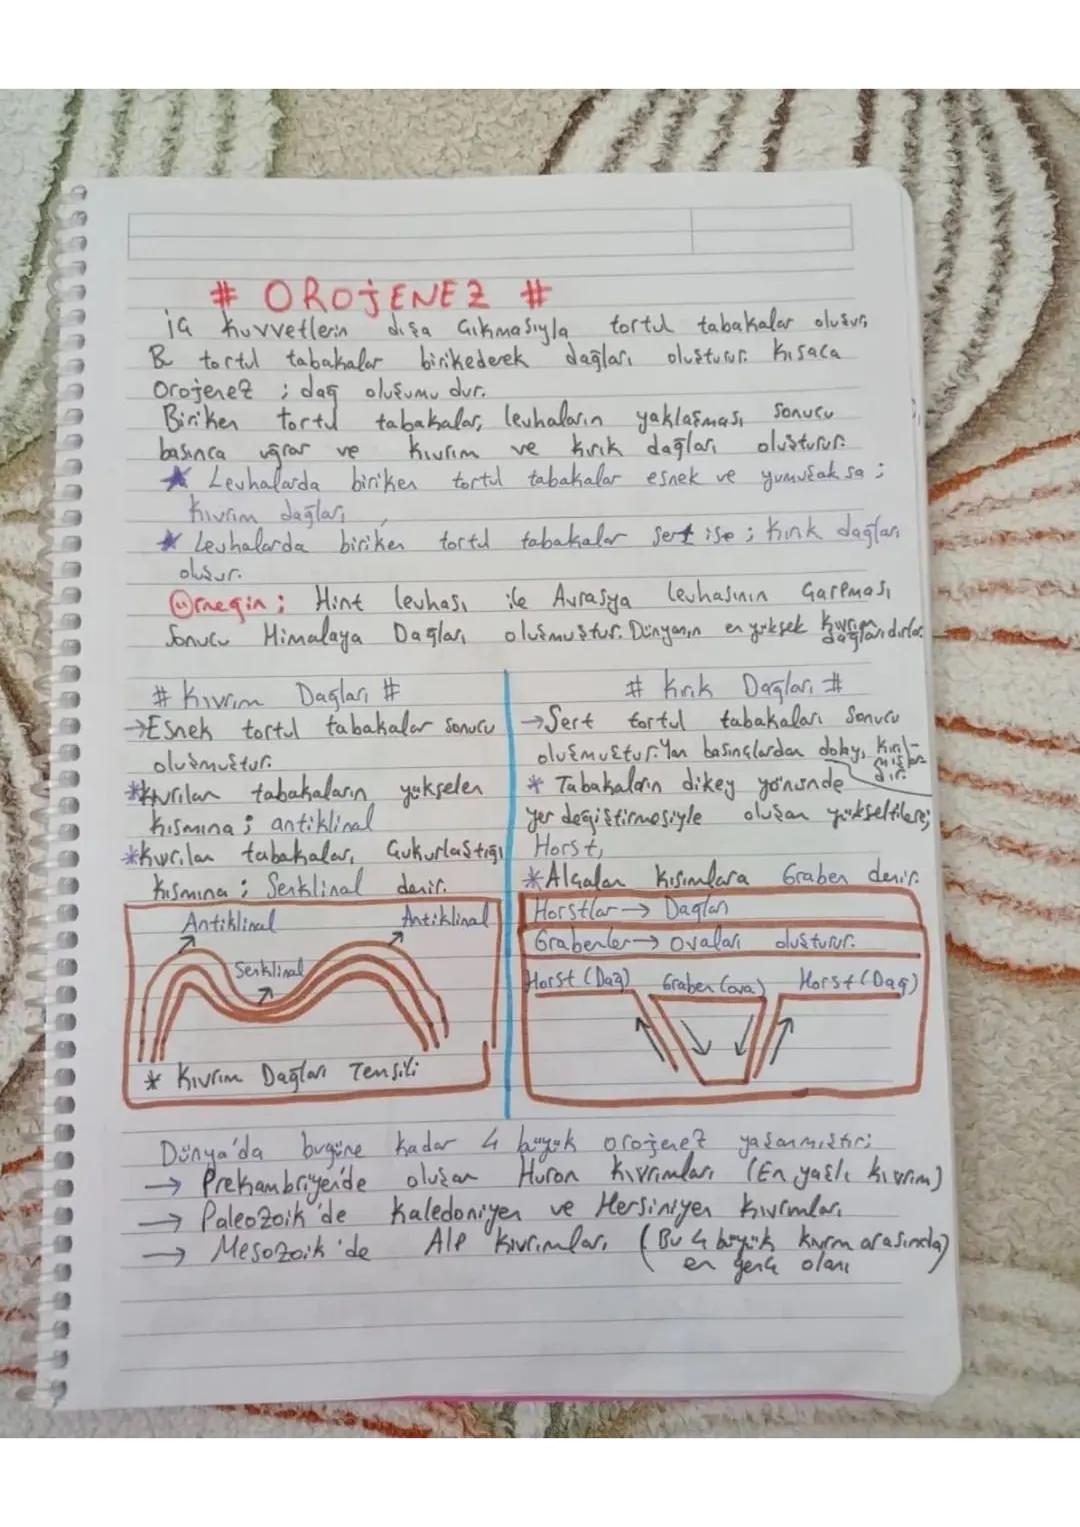 # OROJENEZ #
iç kuvvetlerin dışa çıkmasıyla tortul tabakalar oluşur,
B tortul tabakalar birikederek dağları oluşturur. Kısaca
Orojenez ; dağ oluşumu dur.
Biriken tortul tabakalar, levhaların yaklaşması sonucu
basınca uğrar ve kıvrım ve kırık dağları oluşturur.
★ Levhalarda biriken tortul tabakalar esnek ve yumuşak sa ;
kıvrım dağları,
★ Levhalarda biriken tortul tabakalar sert ise ; kırık dağları
oluşur.
Örneğin ; Hint levhası ile Avrasya levhasının çarpması
Sonucu Himalaya Dağları oluşmuştur. Dünyanın en yüksek kıvrım
dağlarıdırlar.
# Kıvrım Dağları #
→Esnek tortul tabakalar sonucu
oluşmuştur.
*Kıvrılan tabakaların yükselen
kısmına ; antiklinal
*Kıvrılan tabakaları, Çukurlaştığı
kısmına ; Senklinal denir.
Antiklinal Antiklinal
Senklinal
* Kıvrım Dağları Temsili
# Kırık Dağları #
→Sert tortul tabakaları sonucu
oluşmuştur. Yan basınçlardan dolayı kırıl-
mışlar-
dır.
* Tabakaların dikey yönünde
yer değiştirmesiyle oluşan yükseltilere;
Horst,
*Alçalan kısımlara Graben denir.
Horstlar → Dağları
Grabenler → ovaları oluşturur.
Horst (Dağ) Graben (ova) Horst (Dağ)
Dünya'da bugüne kadar 4 büyük orojenez yaşanmıştır;
→ Prekambriyen'de oluşan Huron kıvrımları (En yaşlı kıvrım)
→ Paleozoik'de Kaledoniyen ve Hersiniyen kıvrımları
→ Mesozoik'de Alp kıvrımları (Bu 4 büyük kıvrım arasında)
en genç olanı